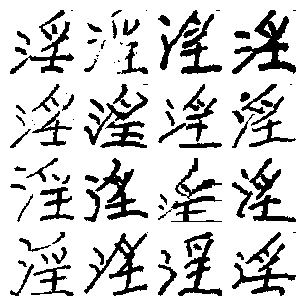 淫淫淫淫
淫淫淫淫
淫淫淫淫
淫淫淫淫